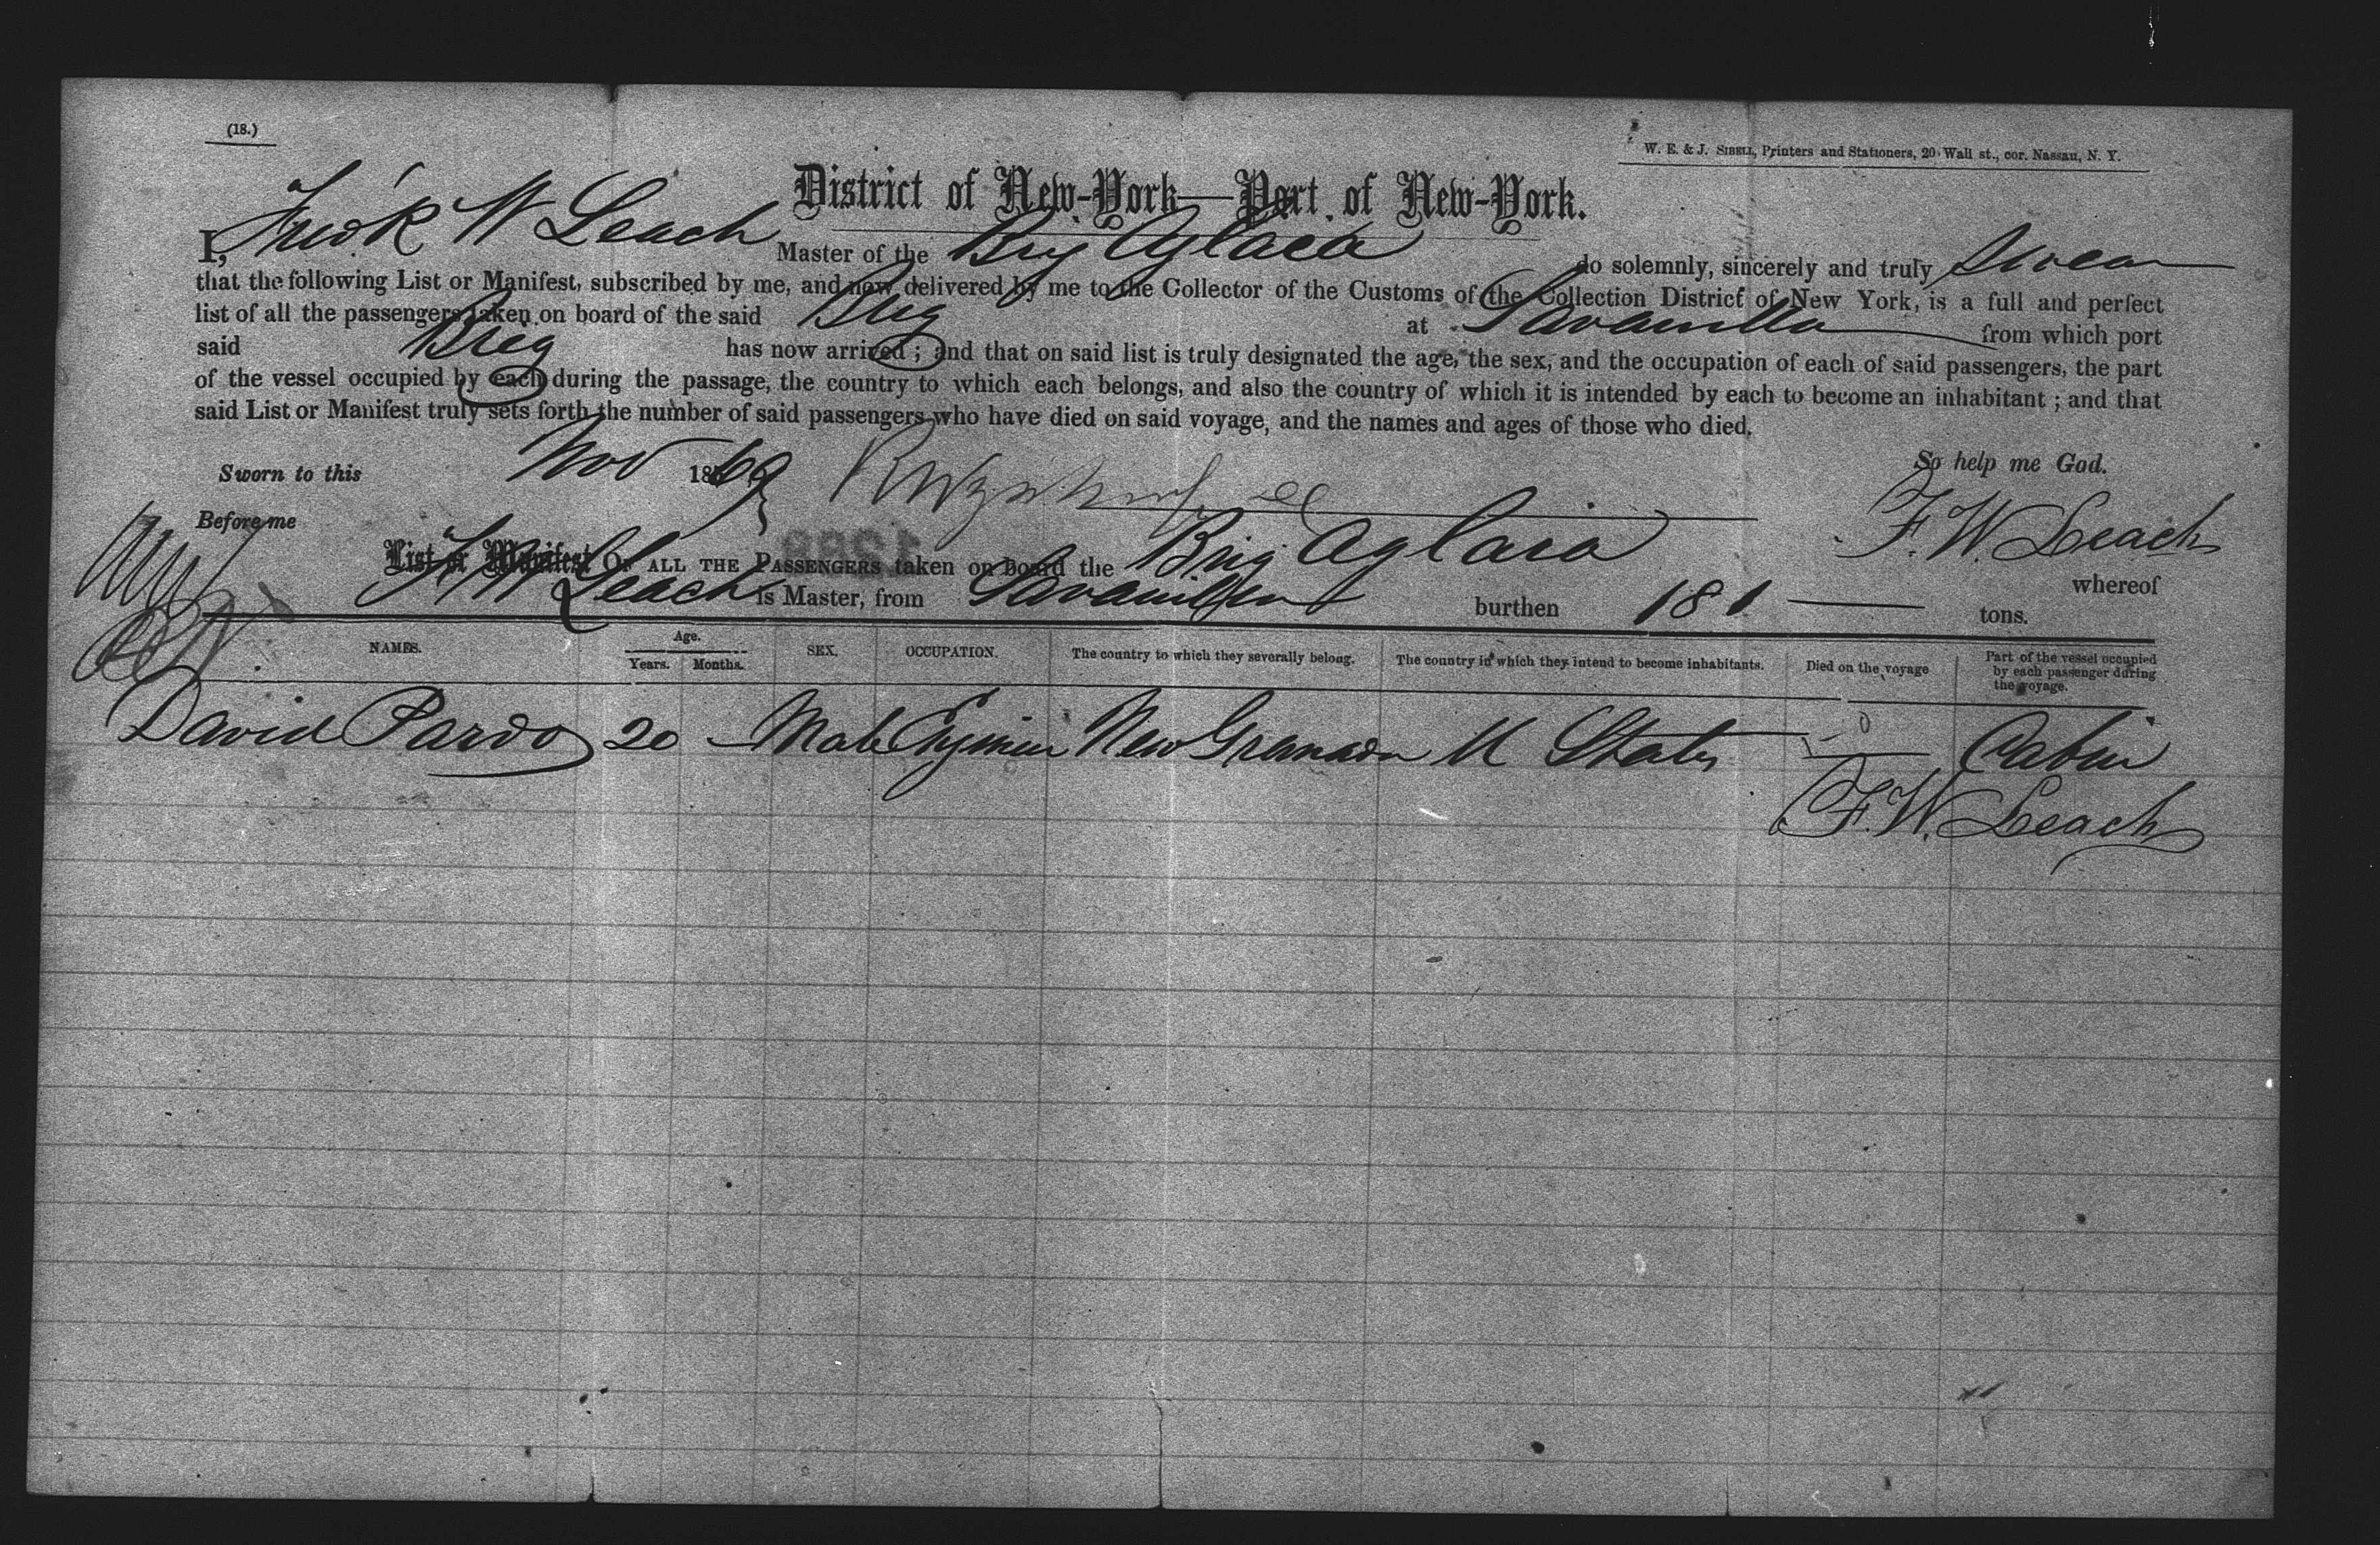 (18.)
W. E. & J. SIBELL, Printers and Stationers, 20 Wall st., cor. Nassau, N. Y.
District of New-York—Port of New-York.
I, Fredk W Leach Master of the Brig Aglaia do solemnly, sincerely and truly Swear
that the following List or Manifest, subscribed by me, and now delivered by me to the Collector of the Customs of the Collection District of New York, is a full and perfect
list of all the passengers taken on board of the said Brig at Savanilla from which port
said Brig has now arrived ; and that on said list is truly designated the age, the sex, and the occupation of each of said passengers, the part
of the vessel occupied by each during the passage, the country to which each belongs, and also the country of which it is intended by each to become an inhabitant ; and that
said List or Manifest truly sets forth the number of said passengers who have died on said voyage, and the names and ages of those who died.
Sworn to this Nov 1869
So help me God.
Before me
F. W. Leach
List or Manifest OF ALL THE PASSENGERS taken on board the Brig Aglaia whereof
F W Leach is Master, from Savanilla burthen 181 tons.
NAMES. Age. Years. Months. SEX. OCCUPATION. The country to which they severally belong. The country in which they intend to become inhabitants. Died on the voyage Part of the vessel occupied by each passenger during the voyage.
David Pardo 20 Male New Granada U States Cabin
F. W. Leach